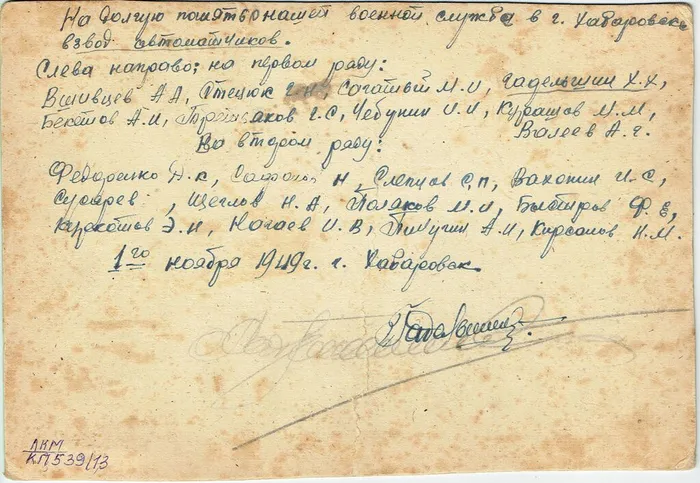 На долгую память нашей военной службы в г. Хабаровске
взвод автоматчиков.
Слева направо: на первом ряду:
Вшивцев А А, Птецюк Г Н, Согатый М И, Гадельшин Х.Х,
Бекетов А.И, Третьяков Г.С, Чебунин И.И, Курашов М.М,
Валеев А.Г.
Во втором ряду:
Федоренко Д.К, Н, Слепцов С.П, Вахонин И.С,
Сударев , Щеглов Н.А, Поляков М.И, Быстров Ф.Е,
Э.И, Нагаев И.В, Пичугин А.И, Кирсанов Н.М.
1го ноября 1949г. г. Хабаровск
ЛКМ
КП 539/13